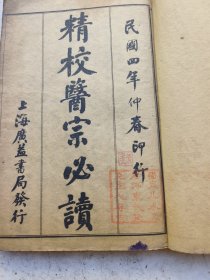 民國四年仲春印行
精校醫宗必讀
上海廣益書局發行